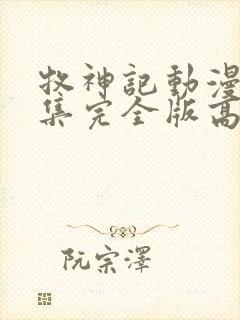 牧神記動漫
集完全版高
阮宗澤